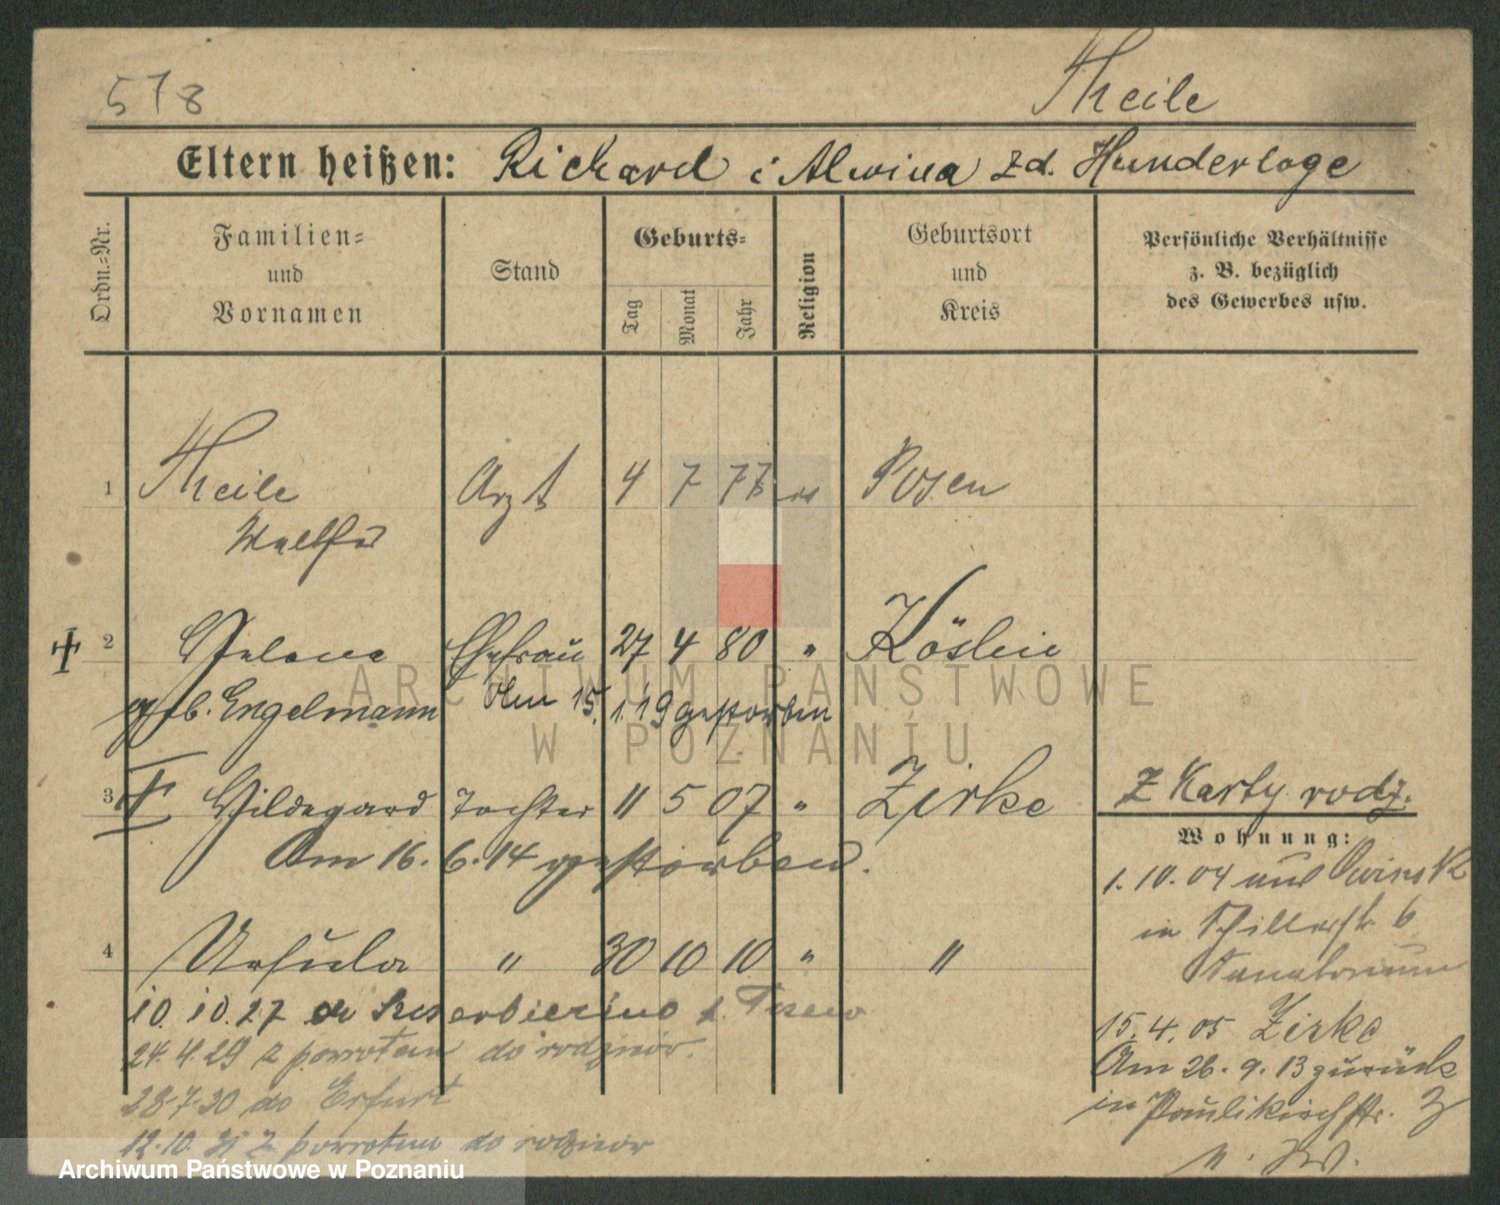 578
Theile
Eltern heißen: Richard i Alwina zd. Hunderloge
Ordn.-Nr.
Familien-
und
Vornamen
Stand
Geburts-
Tag
Monat
Jahr
Religion
Geburtsort
und
Kreis
Persönliche Verhältnisse
z. B. bezüglich
des Gewerbes usw.
1 Theile Arzt 4 7 77 Posen
2 Helene Ehefrau 27 4 80 " Köslin
geb. Engelmann Am 15. 1. 19 gestorben
3 Hildegard Tochter 11 5 07 " Zirke
Am 16. 6. 14 gestorben.
4 Ursula " 30 10 10 " "
10. 10. 27 do
24. 4. 29 z powrotem do rodziców.
28.7.30 do Erfurt
12.10. z powrotem do rodziców
Z Karty rodz.
Wohnung:
1. 10. 04 aus Owinsk
in Schillerstr 6
Sanatorium
15. 4. 05 Zirke
Am 26. 9. 13 zurück
in Paulikirchstr. 3
ARCHIWUM PAŃSTWOWE
W POZNANIU
Archiwum Państwowe w Poznaniu